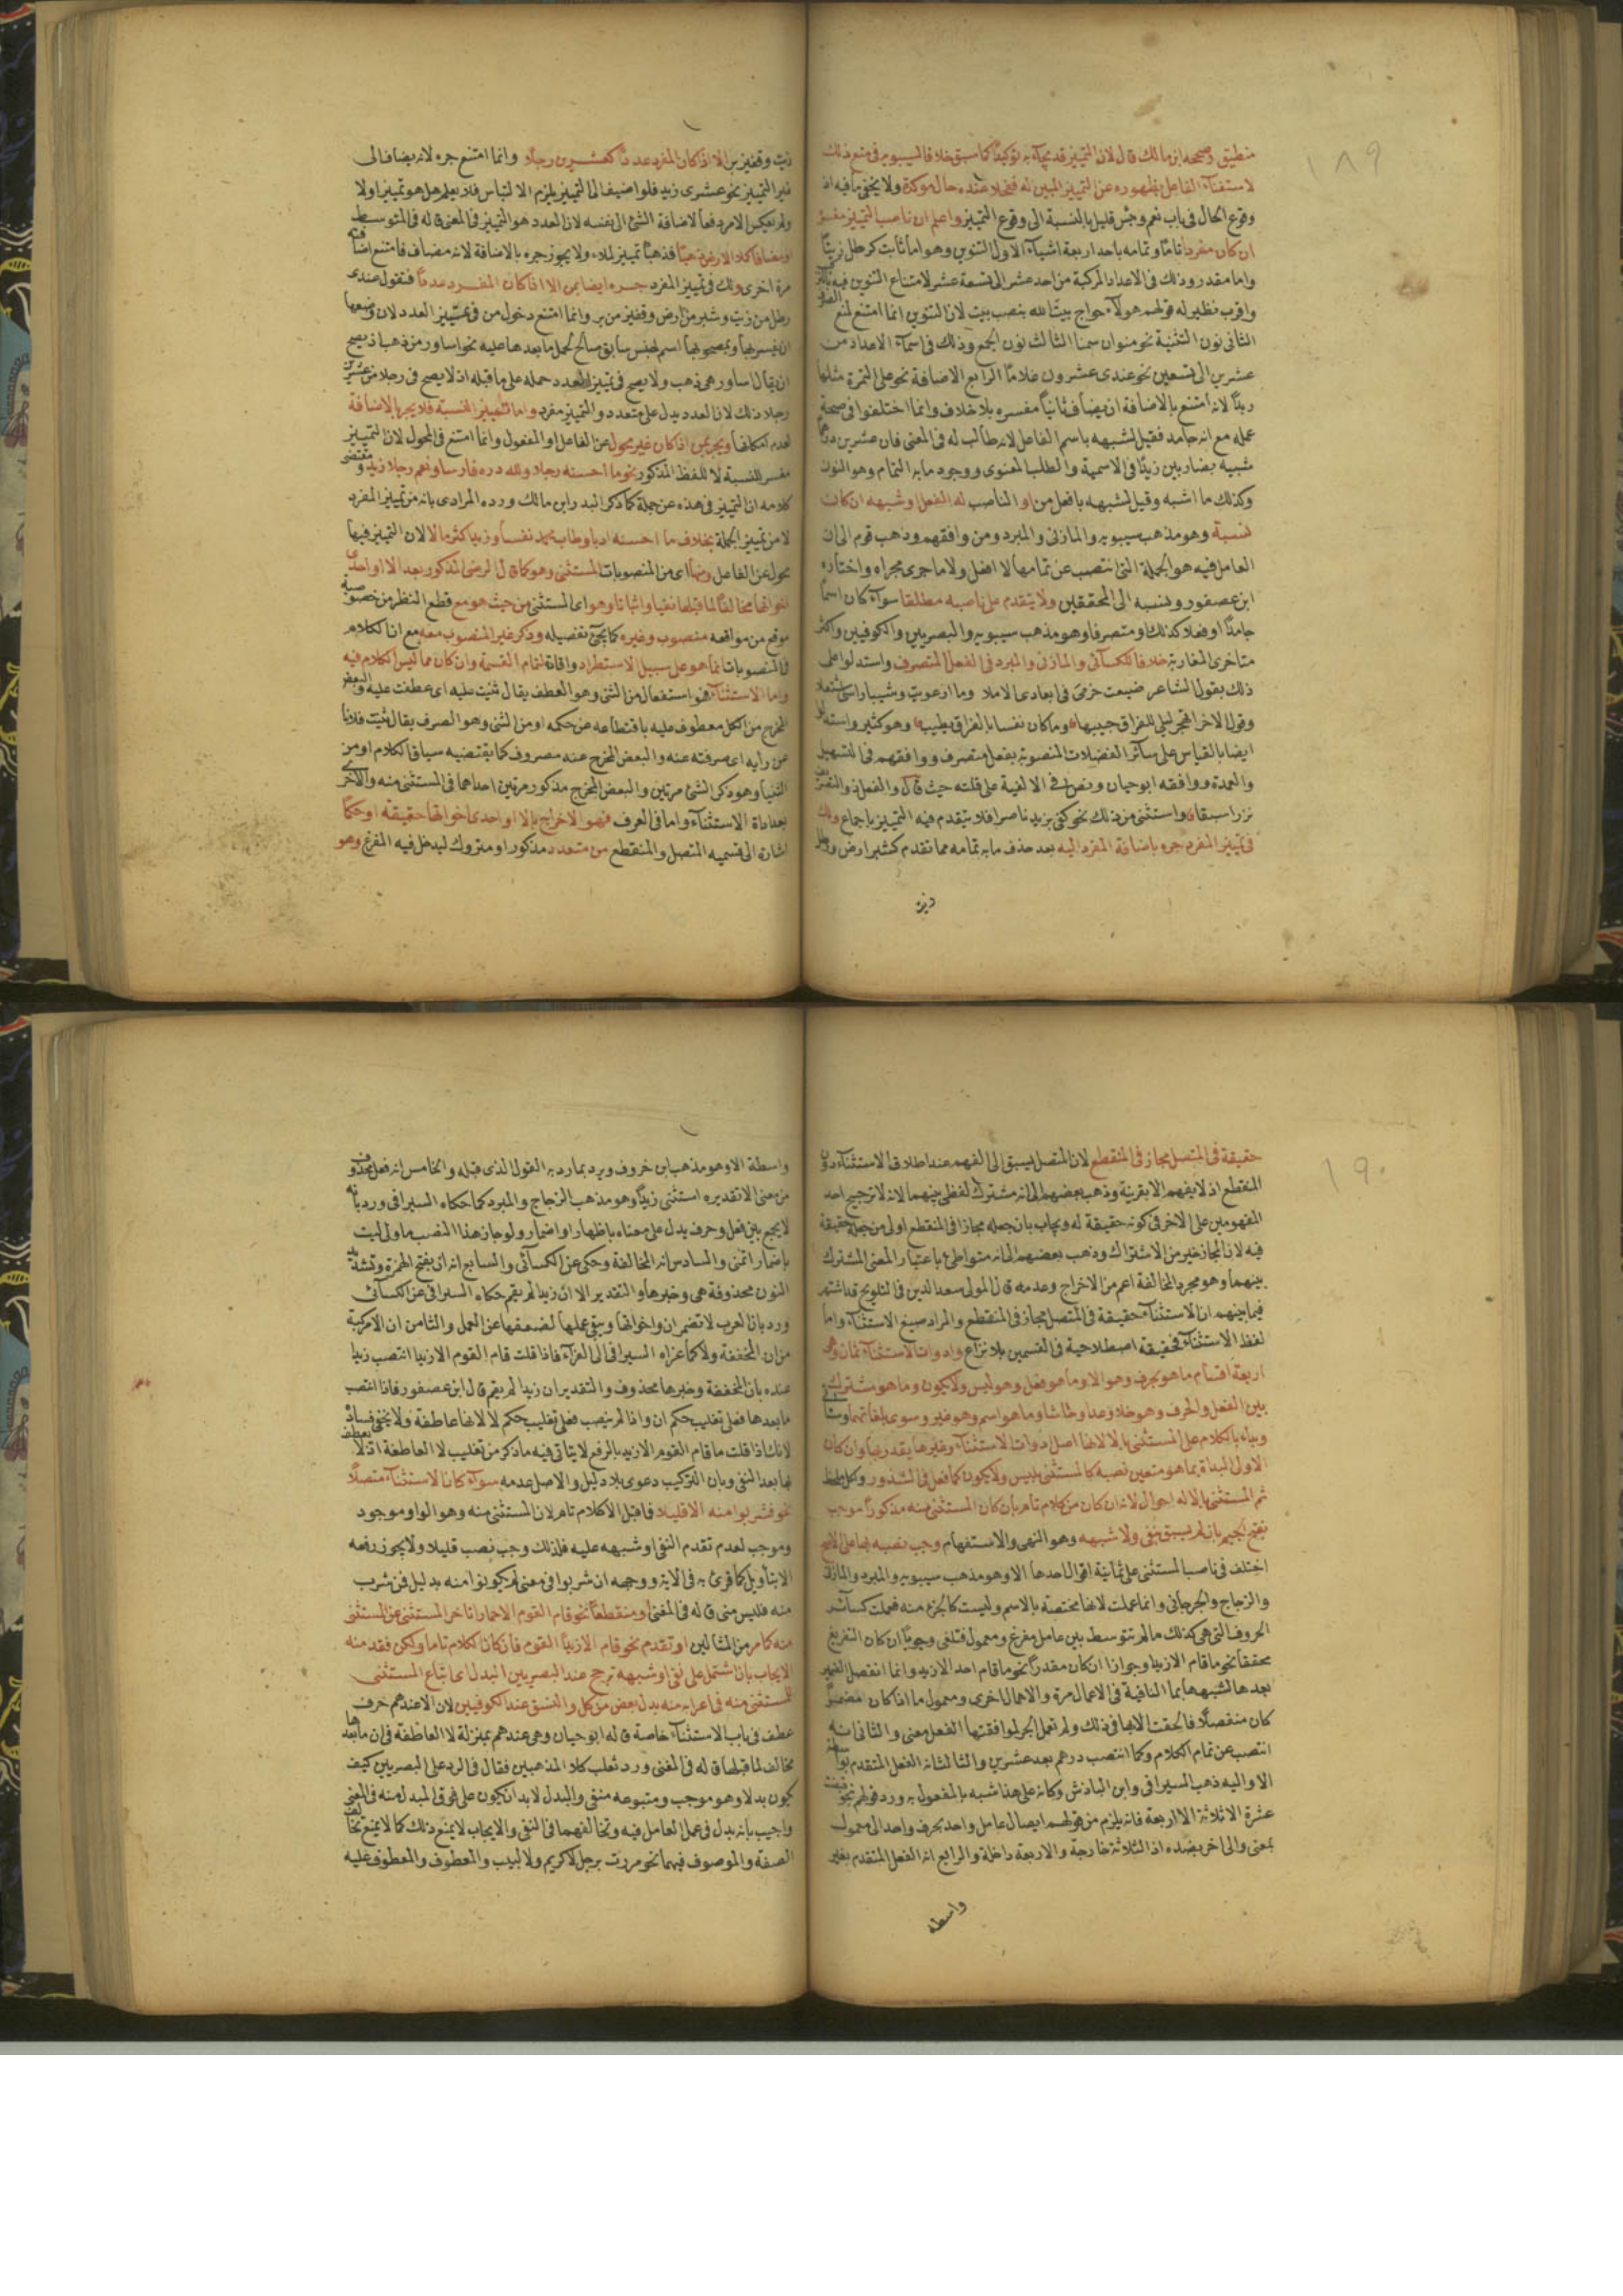 ١٨٩
منطيق وصححه ابن مالك قال لان التمييز قد يجاء به توكيدا كما سبق خلافا لسيبويه في منع ذلك
لاستغناء الفاعل بظهوره عن التمييز المبين له فنخلا عنده حال موكدة ولا يخفى ما فيه اذ
وقوع الحال في باب نعم وبئس قليل بالنسبة الى وقوع التمييز واعلم ان ناصب التمييز مفسره
ان كان مفردا تاما وتمامه باحد اربعة اشياء الاول التنوين وهو اما ثابت كرطل زيتا
واما مقدر وذلك في الاعداد المركبة من احد عشر الى تسعة عشر لامتناع التنوين فيه
واقرب نظير له قولهم هولاء حواج بيت الله بنصب بيت لان التنوين انما امتنع لمنع الصرف
الثاني نون التثنية نحو منوان سمنا الثالث نون الجمع وذلك في اسماء الاعداد من
عشرين الى تسعين نحو عندي عشرون غلاما الرابع الاضافة نحو على التمرة مثلها
زبدا لانه امتنع بالاضافة ان يضاف ثانيا مفسره بلا خلاف وانما اختلفوا في صحة
عمله مع انه جامد فقيل لشبهه باسم الفاعل لانه طالب له في المعنى فان عشرين درهما
شبيه بضاربين زيدا في الاسمية والطلب المعنوي ووجود ما به التمام وهو النون
وكذلك ما اشبه وقيل لشبهه بافعل من او الناصب له الفعل او شبهه ان كان
نسبة وهو مذهب سيبويه والمازني والمبرد ومن وافقهم وذهب قوم الى ان
العامل فيه هو الجملة التي انتصب عن تمامها لا الفعل ولا ما جرى مجراه واختاره
ابن عصفور ونسبه الى المحققين ولا يتقدم على ناصبه مطلقا سواء كان اسما
جامدا او فعلا كذلك او متصرفا وهو مذهب سيبويه والبصريين والكوفيين واكثر
متاخري المغاربة خلافا للكسائي والمازني والمبرد في الفعل المتصرف واستدلوا على
ذلك بقول الشاعر ضيعت حزمي في ابعادي الاملا وما ارعويت وشيبا راسي اشتعلا
وقول الاخر اتهجر ليلى للفراق حبيبها وما كان نفسا بالفراق يطيب وهو كثير واستدل
ايضا بالقياس على سائر الفضلات المنصوبة بفعل متصرف ووافقهم في التسهيل
والعمدة ووافقه ابو حيان ونص في الالفية على قلته حيث قال والفعل ذو التصريف
نزرا سبقا واستثني من ذلك نحو كفى بزيد ناصرا فلا يتقدم فيه التمييز باجماع ولك
في تمييز المفرد جره باضافة المفرد اليه بعد حذف ما به تمامه مما تقدم كشبر ارض ورطل
زيت
زيت وقفيز بر الا اذا كان المفرد عددا كعشرين رجلا وانما امتنع جره لانه يضاف الى
غير التمييز نحو عشري زيد فلو اضيف الى التمييز يلزم الالتباس فلا يعلم هل هو تمييز او لا
ولم يعكس الامر دفعا لاضافة الشئ الى نفسه لان العدد هو التمييز في المعنى قاله في المتوسط
او مضافا كملا الارض ذهبا فذهبا تمييز لملاء ولا يجوز جره بالاضافة لانه مضاف فامتنع اضافته
مرة اخرى ولك في تمييز المفرد جره ايضا بمن الا اذا كان المفرد عددا فتقول عندي
رطل من زيت وشبر من ارض وقفيز من بر وانما امتنع دخول من في تمييز العدد لان وضعها
ان يفسر بها وبمصحوبها اسم لجنس سابق صالح لحمل ما بعدها عليه نحو اساور من ذهب اذ يصح
ان يقال اساور هي ذهب ولا يصح في تمييز العدد حمله على ما قبله اذ لا يصح في رجلا من عشرين
رجلا ذلك لان العدد يدل على متعدد والتمييز مفرد واما تمييز النسبة فلا يجر بالاضافة
لعدم امكانها ويجر بمن اذا كان غير محول عن الفاعل او المفعول وانما امتنع في المحول لان التمييز
مفسر للنسبة لا للفظ المذكور نحو ما احسنه رجلا ولله دره فارسا ونعم رجلا زيد ومقتضى
كلامه ان التمييز في هذه عن جملة كما ذكر البدر ابن مالك ورده المرادي بانه من تمييز المفرد
لا من تمييز الجملة بخلاف ما احسنه ادبا وطاب محمد نفسا وزيد اكثر مالا لان التمييز فيها
محول عن الفاعل ومنها اي من المنصوبات المستثنى وهو كما قال الرضي المذكور بعد الا او احدى
اخواتها مخالفا لما قبلها نفيا واثباتا وهو اي المستثنى من حيث هو مع قطع النظر من خصوصية
موقع من مواقعه منصوب وغيره كما يجئ تفصيله وذكر غير المنصوب معه مع ان الكلام
في المنصوبات انما هو على سبيل الاستطراد واقامة لتمام القسمة وان كان مما ليس الكلام فيه
واما الاستثناء فهو استفعال من الثني وهو العطف يقال ثنيت عليه اي عطفت عليه والبعض
المخرج من الكل معطوف عليه باقتطاعه عن حكمه او من الثني وهو الصرف يقال ثنيت فلانا
عن رايه اي صرفته عنه والبعض المخرج عنه مصروف كما يقتضيه سياق الكلام او من
الثنيا وهو ذكر الشئ مرتين والبعض المخرج مذكور مرتين احداهما في المستثنى منه والاخرى
بعد اداة الاستثناء واما في العرف فهو الاخراج بالا او احدى اخواتها حقيقة او حكما
اشارة الى قسميه المتصل والمنقطع من متعدد مذكور او متروك ليدخل فيه المفرغ وهو
١٩٠
حقيقة في المتصل مجاز في المنقطع لان المتصل يسبق الى الفهم عند اطلاق الاستثناء دون
المنقطع اذ لا يفهم الا بقرينة وذهب بعضهم الى انه مشترك لفظي بينهما لانه لا ترجيح احد
المفهومين على الاخر في كونه حقيقة له ويجاب بان جعله مجازا في المنقطع اولى من جعله حقيقة
فيه لان المجاز خير من الاشتراك وذهب بعضهم الى انه متواطئ باعتبار المعنى المشترك
بينهما وهو مجرد المخالفة اعم من الاخراج وعدمه قال المولى سعد الدين في التلويح قد اشتهر
فيما بينهم ان الاستثناء حقيقة في المتصل مجاز في المنقطع والمراد صيغ الاستثناء واما
لفظ الاستثناء فحقيقة اصطلاحية في القسمين بلا نزاع وادوات الاستثناء ثمان وهي
اربعة اقسام ما هو حرف وهو الا وما هو فعل وهو ليس ولا يكون وما هو مشترك
بين الفعل والحرف وهو خلا وعدا وحاشا وما هو اسم وهو غير وسوى بلغاتهما
وبداء بالكلام على المستثنى بالا لانها اصل ادوات الاستثناء وغيرها يقدر بها وان كان
الاولى البداة بما هو متعين نصبه كالمستثنى بليس ولا يكون كما فعل في الشذور ولكل ملحظ
ثم المستثنى بالا له احوال لانه ان كان من كلام تام بان كان المستثنى منه مذكورا موجب
بفتح الجيم بان لم يسبق بنفي ولا شبهه وهو النهي والاستفهام وجب نصبه بها على الاصح
اختلف في ناصب المستثنى على ثمانية اقوال احدها الا وهو مذهب سيبويه والمبرد والمازني
والزجاج والجرجاني وانما عملت لانها مختصة بالاسم وليست كالجزء منه فعملت كسائر
الحروف التي هي كذلك ما لم تتوسط بين عامل مفرغ ومعمول فتلغى وجوبا ان كان التفريغ
محققا نحو ما قام الا زيد وجوازا ان كان مقدرا نحو ما قام احد الا زيد وانما انفصل الضمير
بعدها لشبهها بما النافية في الاعمال مرة والاهمال اخرى ومعمول ما اذا كان مضمرا
كان منفصلا فالحقت الا بها في ذلك ولم تعمل الجر لموافقتها الفعل معنى والثاني انه
انتصب عن تمام الكلام وكما انتصب درهم بعد عشرين والثالث انه الفعل المتقدم بواسطة
الا واليه ذهب السيرافي وابن الباذش وكانه على هذا شبه بالمفعول به ورد قولهم نحو قبضت
عشرة الا ثلاثة الا اربعة فانه يلزم من قولهم ايصال عامل واحد بحرف واحد الى معمول
بمعنى والى اخر بضده اذ الثلاثة خارجة والاربعة داخلة والرابع انه الفعل المتقدم بغير
واسطة
واسطة الا وهو مذهب ابن خروف ويرد بما رد به القول الذي قبله والخامس انه فعل محذوف
من معنى الا تقديره استثنى زيدا وهو مذهب الزجاج والمبرد كما حكاه السيرافي ورد بانه
لا يجمع بين فعل وحرف يدل على معناه باظهار او اضمار ولو جاز هذا النصب ما ولي ليت
باضمار اتمنى والسادس انه المخالفة وحكي عن الكسائي والسابع انه ان بفتح الهمزة وتشديد
النون محذوفة هي وخبرها والتقدير الا ان زيدا لم يقم حكاه السيرافي عن الكسائي
ورد بان العرب لا تضمر ان واخواتها ويبقى عملها لضعفها عن العمل والثامن ان الا مركبة
من ان المخففة ولا كما عزاه السيرافي الى الفراء فاذا قلت قام القوم الا زيدا انتصب زيدا
عنده بان المخففة وخبرها محذوف والتقدير ان زيدا لم يقم قال ابن عصفور فاذا انتصب
ما بعدها فعلى تغليب حكم ان واذا لم ينصب فعلى تغليب حكم لا لانها عاطفة ولا يخفى فساده
لانك اذا قلت ما قام القوم الا زيد بالرفع لا يتاتى فيه ما ذكر من تغليب لا العاطفة اذ لا يعطف
بها بعد النفي وبان التركيب دعوى بلا دليل والاصل عدمه سواء كان الاستثناء متصلا
نحو فشربوا منه الا قليلا فما قبل الا كلام تام لان المستثنى منه وهو الواو موجود
وموجب لعدم تقدم النفي او شبهه عليه فلذلك وجب نصب قليلا ولا يجوز رفعه
الا بتاويل كما قرئ به في الاية ووجهه ان شربوا في معنى لم يكونوا منه بدليل فمن شرب
منه فليس مني قاله في المغني او منقطعا نحو قام القوم الا حمارا تاخر المستثنى عن المستثنى
منه كما مر من المثالين او تقدم نحو قام الا زيدا القوم فان كان الكلام تاما ولكن فقد منه
الايجاب بان اشتمل على نفي او شبهه ترجح عند البصريين البدل اي اتباع المستثنى
للمستثنى منه في اعرابه منه بدل بعض من كل والنسق عند الكوفيين لان الا عندهم حرف
عطف في باب الاستثناء خاصة قاله ابو حيان وهي عندهم بمنزلة لا العاطفة في ان ما بعدها
مخالف لما قبلها قاله في المغني ورد ثعلب كلا المذهبين فقال في الرد على البصريين كيف
يكون بدلا وهو موجب ومتبوعه منفي والبدل لابد ان يكون على وفق المبدل منه في المعنى
واجيب بانه بدل في عمل العامل فيه وتخالفهما في النفي والايجاب لا يمنع ذلك كما لا يمنع تخالف
الصفة والموصوف فيهما نحو مررت برجل لا كريم ولا لبيب والمعطوف والمعطوف عليه